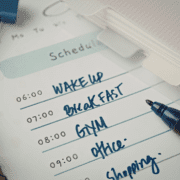 Mo Tu
Schedul
06:00 WAKE UP
07:00 BreaKFAST
08:00 GYM
09:00 office.
shopping.